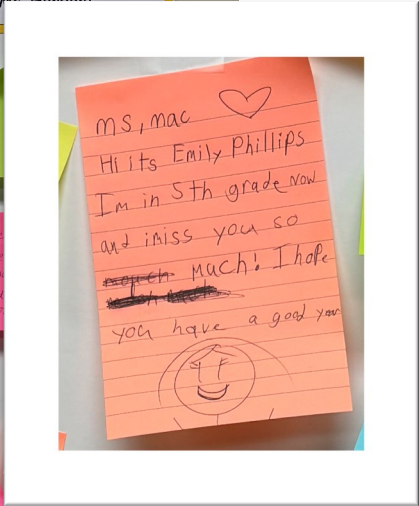 ms, mac
Hi its Emily Phillips
Im in 5th grade now
and imiss you so
much! I hope
you have a good year